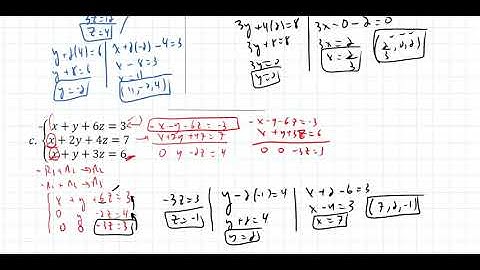 3z=12
z=4
y+2(4)=6
y+8=6
y=-2
x+2(-2)-4=3
x-8=3
x=11
(11,-2,4)
3y+4(2)=8
3y+8=8
3y=0
y=0
3x-0-2=0
3x=2
x=2/3
(2/3,0,2)
c. x+y+6z=3
x+2y+4z=7
x+y+3z=6
-x-y-6z=-3
x+2y+4z=7
0 y -2z=4
-x-y-6z=-3
x+y+3z=6
0 0 -3z=3
-R1+R2→R2
-R1+R3→R3
x+y+6z=3
0 y -2z=4
0 0 -3z=3
-3z=3
z=-1
y-2(-1)=4
y+2=4
y=2
x+2-6=3
x-4=3
x=7
(7,2,-1)